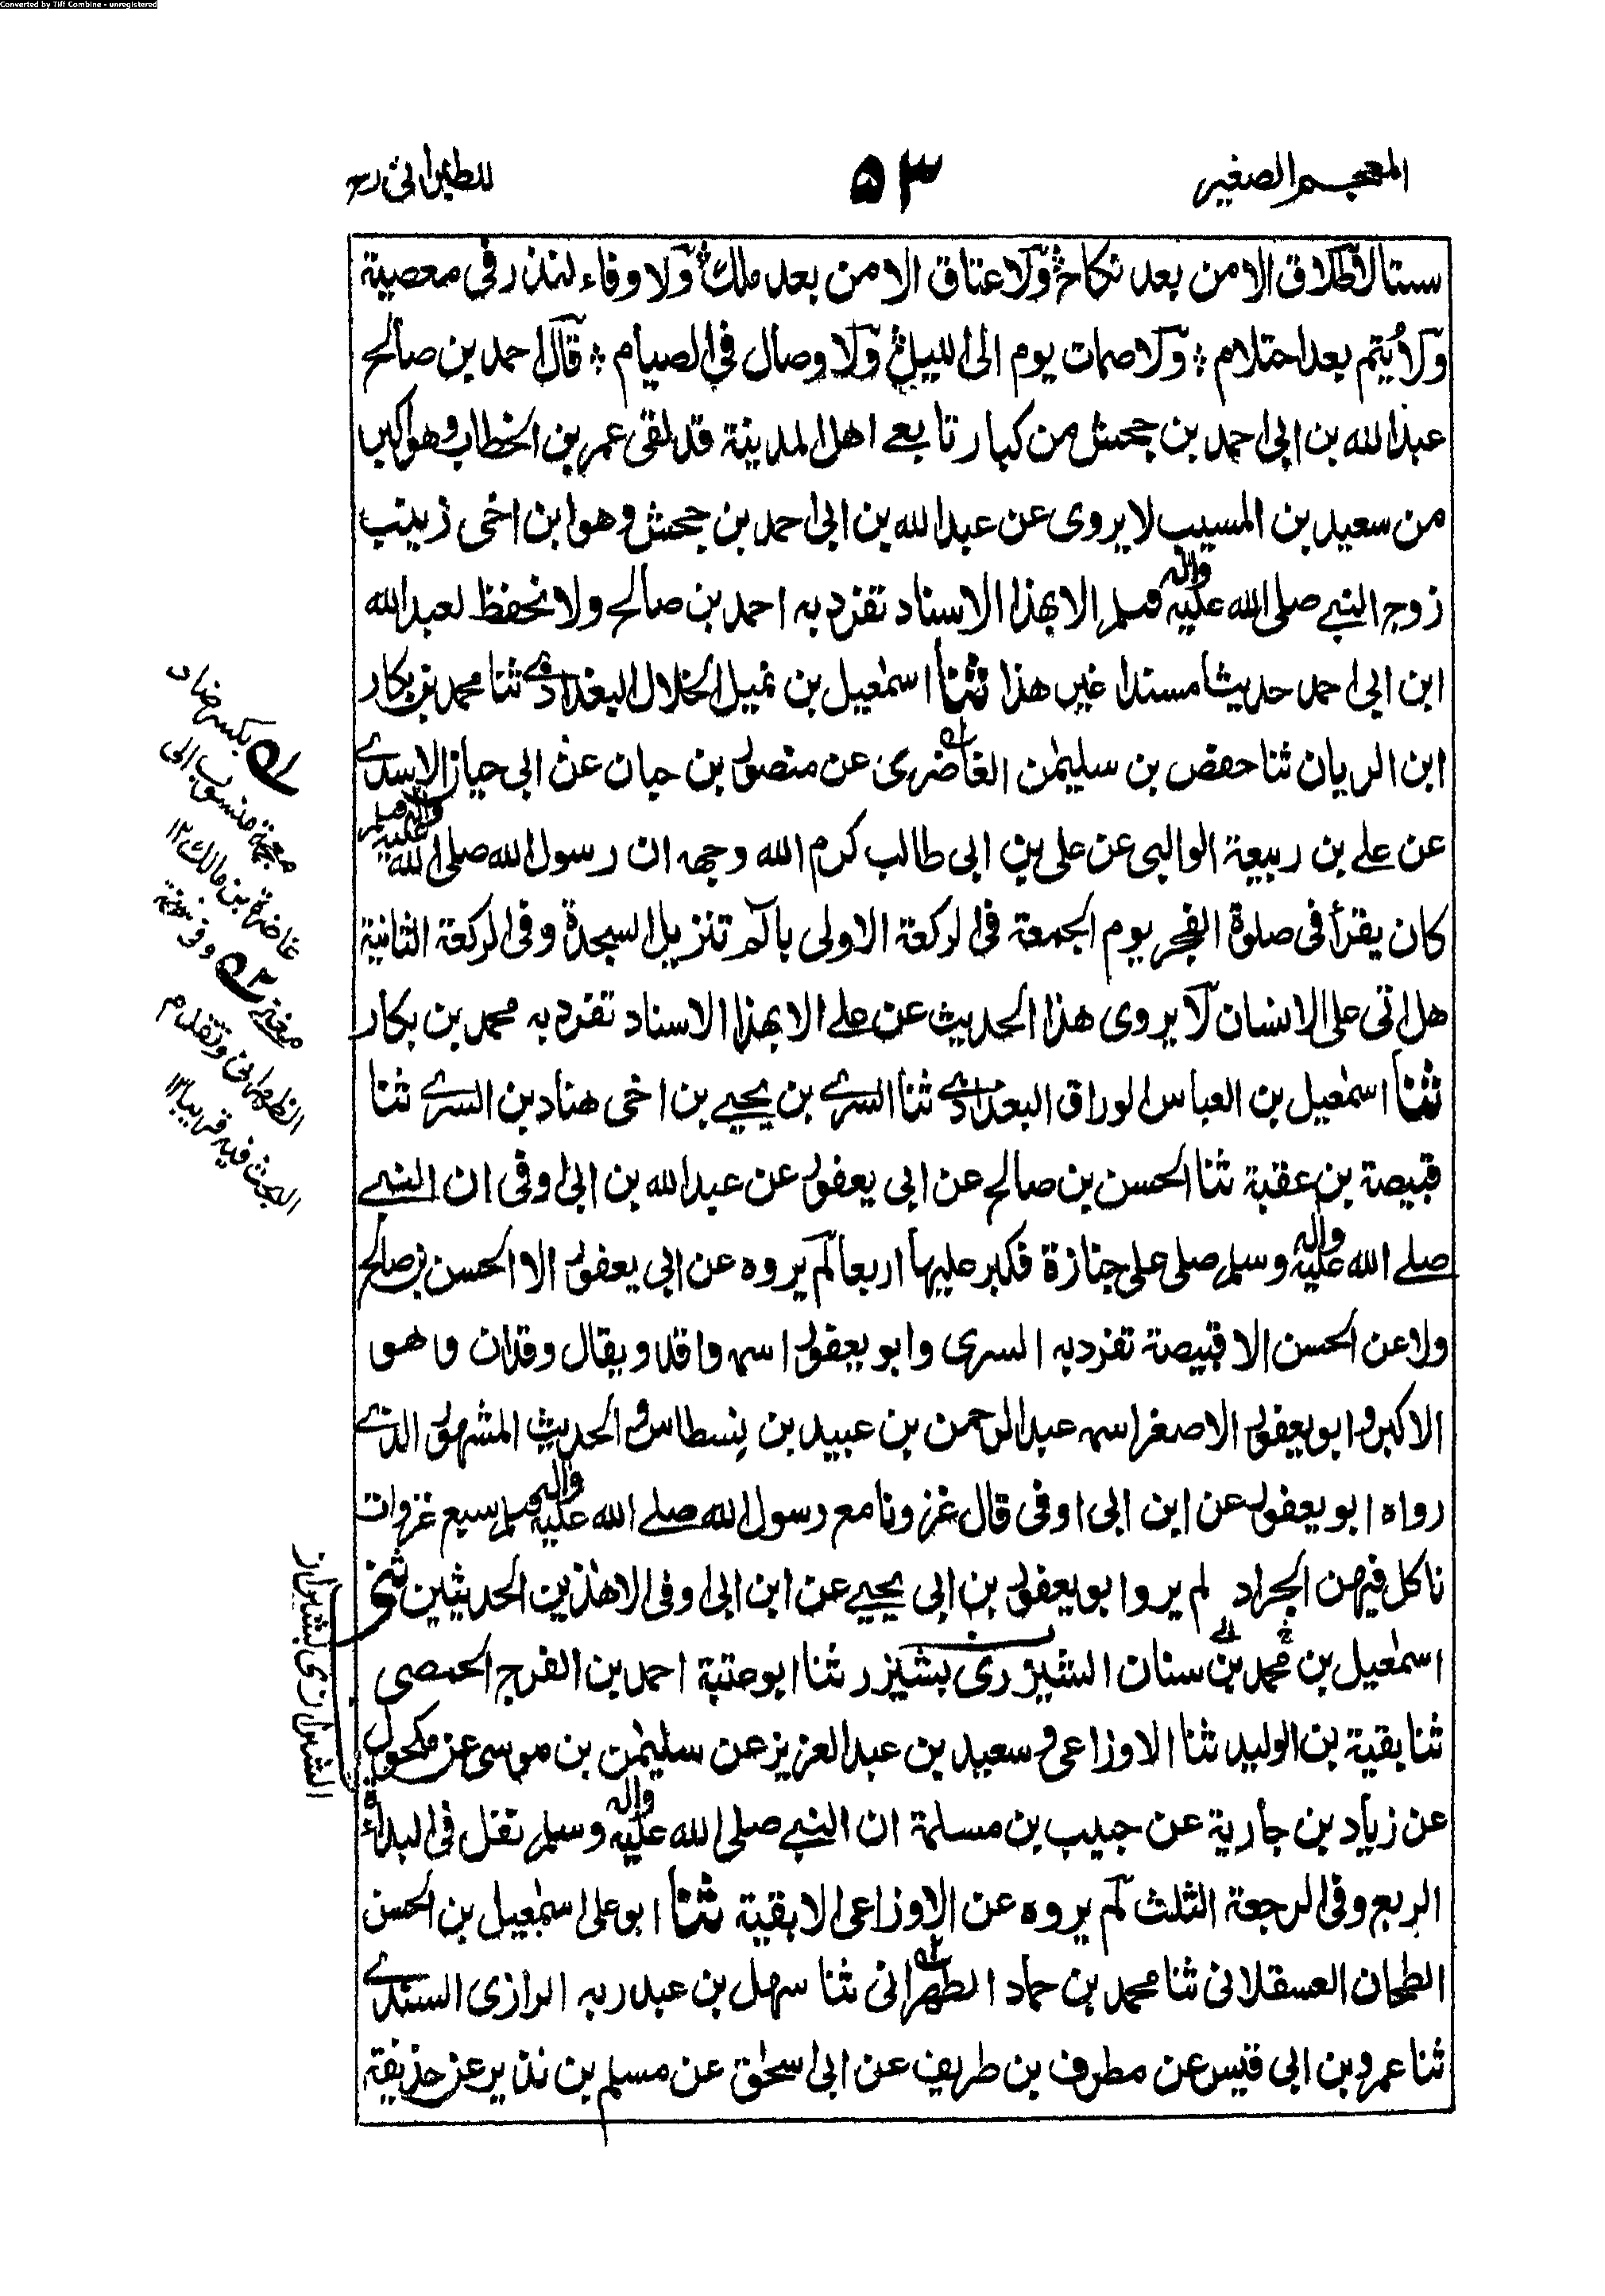 Converted by Tiff Combine - unregistered
المعجم الصغير
٥٣
للطبراني رح
ستا لا طلاق الا من بعد نكاح ولا عتاق الا من بعد ملك ولا وفاء لنذر في معصية
ولا يُتم بعد احتلام ولا صمات يوم الى الليل ولا وصال في الصيام قال احمد بن صالح
عبد الله بن ابي احمد بن جحش من كبار تابعي اهل المدينة قد لقي عمر بن الخطاب وهو اكبر
من سعيد بن المسيب لا يروى عن عبد الله بن ابي احمد بن جحش وهو ابن اخي زينب
زوج النبي صلى الله عليه واله وسلم الا بهذا الاسناد تفرد به احمد بن صالح ولا نحفظ لعبد الله
ابن ابي احمد حديثا مسندا غير هذا ثنا اسمٰعيل بن نميل الخلال البغدادي ثنا محمد بن بكار
ابن الريان ثنا حفص بن سليمٰن الغاضري عن منصور بن حيان عن ابي حياز الاسدي
عن علي بن ربيعة الوالبي عن علي بن ابي طالب كرم الله وجهه ان رسول الله صلى الله عليه واله وسلم
كان يقرأ في صلوة الفجر يوم الجمعة في الركعة الاولى بالم تنزيل السجدة وفي الركعة الثانية
هل اتى على الانسان لا يروى هذا الحديث عن علي الا بهذا الاسناد تفرد به محمد بن بكار
ثنا اسمٰعيل بن العباس الوراق البغدادي ثنا السري بن يحيى بن اخي هناد بن السري ثنا
قبيصة بن عقبة ثنا الحسن بن صالح عن ابي يعفور عن عبد الله بن ابي اوفى ان النبي
صلى الله عليه واله وسلم صلى على جنازة فكبر عليها اربعا لم يروه عن ابي يعفور الا الحسن بن صالح
ولا عن الحسن الا قبيصة تفرد به السرى وابو يعفور اسمه واقد ويقال وقدان وهو
الاكبر وابو يعفور الاصغر اسمه عبد الرحمن بن عبيد بن نِسطاس والحديث المشهور الذي
رواه ابو يعفور عن ابن ابي اوفى قال غزونا مع رسول الله صلى الله عليه واله وسلم سبع غزوات
ناكل فيهن الجراد لم يرو ابو يعفور بن ابي يحيى عن ابن ابي اوفى الا هٰذين الحديثين ثنا
اسمٰعيل بن محمد بن سنان الشيزرى بشيزر ثنا ابو عتبة احمد بن الفرج الحمصى
ثنا بقية بن الوليد ثنا الاوزاعي وسعيد بن عبد العزيز عن سليمٰن بن موسى عن مكحول
عن زياد بن جارية عن حبيب بن مسلمة ان النبي صلى الله عليه واله وسلم نفل في البداءة
الربع وفي الرجعة الثلث لم يروه عن الاوزاعي الا بقية ثنا ابو علي اسمٰعيل بن الحسن
الطحان العسقلاني ثنا محمد بن حماد الطهراني ثنا سهل بن عبد ربه الرازي السندي
ثنا عمرو بن ابي قيس عن مطرف بن طريف عن ابي اسحٰق عن مسلم بن نذير عن حذيفة
بكسر ضاد
معجمة منسوب الى
غاضرة بن مالك ١٢
مغني وفي نسخة
الظهراني وتقدم
البحث فيه قريبا ١٢